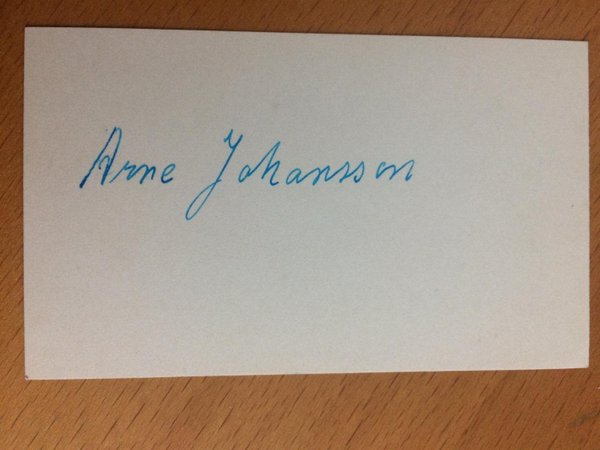 Arne Johansson